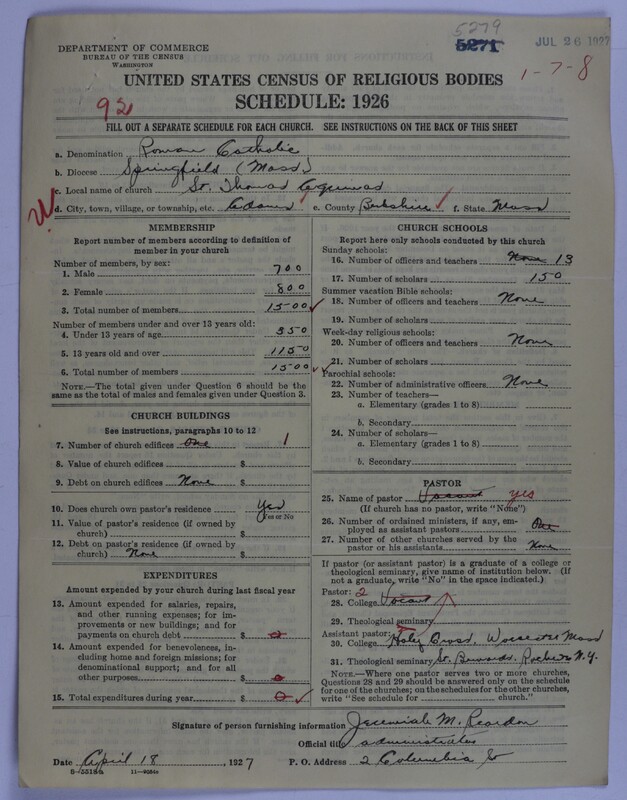 5279
5271
JUL 26 1927
DEPARTMENT OF COMMERCE
BUREAU OF THE CENSUS
WASHINGTON
1-7-8
UNITED STATES CENSUS OF RELIGIOUS BODIES
92
SCHEDULE: 1926
FILL OUT A SEPARATE SCHEDULE FOR EACH CHURCH. SEE INSTRUCTIONS ON THE BACK OF THIS SHEET
a. Denomination Roman Catholic
b. Diocese Springfield (Mass)
c. Local name of church St. Thomas Aquinas
d. City, town, village, or township, etc. Adams e. County Berkshire f. State Mass
MEMBERSHIP
Report number of members according to definition of
member in your church
Number of members, by sex:
1. Male 700
2. Female 800
3. Total number of members 1500
Number of members under and over 13 years old:
4. Under 13 years of age 350
5. 13 years old and over 1150
6. Total number of members 1500
NOTE.—The total given under Question 6 should be the
same as the total of males and females given under Question 3.
CHURCH BUILDINGS
See instructions, paragraphs 10 to 12
7. Number of church edifices One 1
8. Value of church edifices $
9. Debt on church edifices None $
10. Does church own pastor's residence Yes
Yes or No
11. Value of pastor's residence (if owned by
church) $
12. Debt on pastor's residence (if owned by
church) None $
EXPENDITURES
Amount expended by your church during last fiscal year
13. Amount expended for salaries, repairs,
and other running expenses; for im-
provements or new buildings; and for
payments on church debt $
14. Amount expended for benevolences, in-
cluding home and foreign missions; for
denominational support; and for all
other purposes $
15. Total expenditures during year $
CHURCH SCHOOLS
Report here only schools conducted by this church
Sunday schools:
16. Number of officers and teachers None 13
17. Number of scholars 150
Summer vacation Bible schools:
18. Number of officers and teachers None
19. Number of scholars
Week-day religious schools:
20. Number of officers and teachers None
21. Number of scholars
Parochial schools:
22. Number of administrative officers None
23. Number of teachers—
a. Elementary (grades 1 to 8)
b. Secondary
24. Number of scholars—
a. Elementary (grades 1 to 8)
b. Secondary
PASTOR
25. Name of pastor Vacant yes
(If church has no pastor, write "None")
26. Number of ordained ministers, if any, em-
ployed as assistant pastors One
27. Number of other churches served by the
pastor or his assistants None
If pastor (or assistant pastor) is a graduate of a college or
theological seminary, give name of institution below. (If
not a graduate, write "No" in the space indicated.)
Pastor: 2
28. College Vacant
29. Theological seminary
Assistant pastor:
30. College Holy Cross, Worcester Mass
31. Theological seminary St. Bernards, Rochester N.Y.
NOTE.—Where one pastor serves two or more churches,
Questions 28 and 29 should be answered only on the schedule
for one of the churches; on the schedules for the other churches,
write "See schedule for church."
Signature of person furnishing information Jeremiah M. Reardon
Official title administrator
Date April 18, 1927 P. O. Address 2 Columbia St
11—9034a